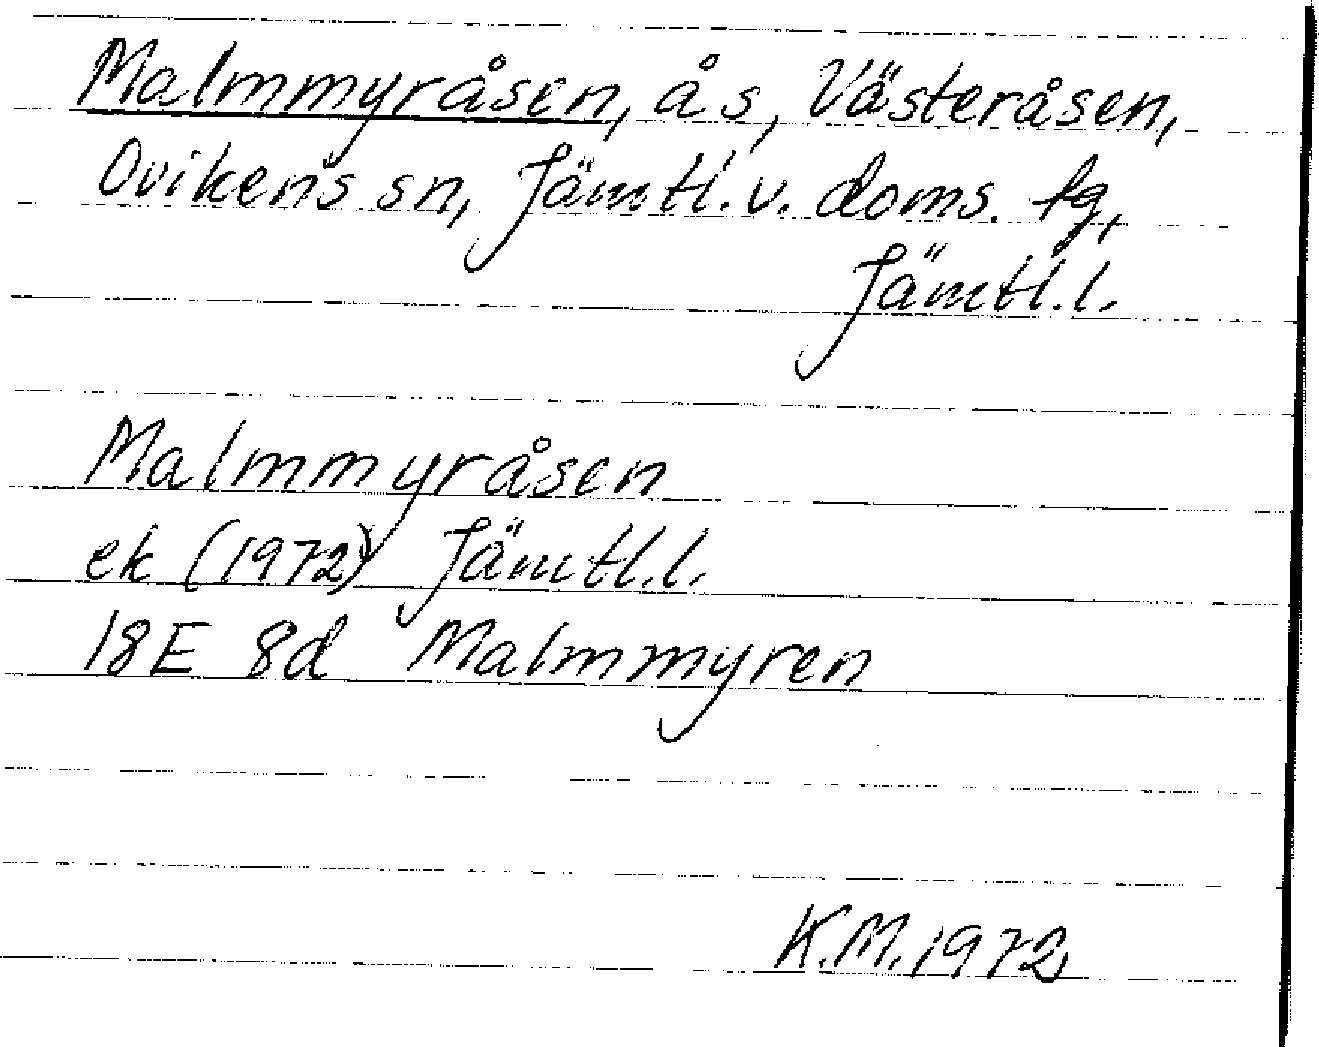 Malmmyråsen, ås, Västeråsen,
Ovikens sn, Jämtl. v. doms. tg,
Jämtl. l.
Malmmyråsen
ek (1972) Jämtl. l.
18E 8d Malmmyren
K.M. 1972